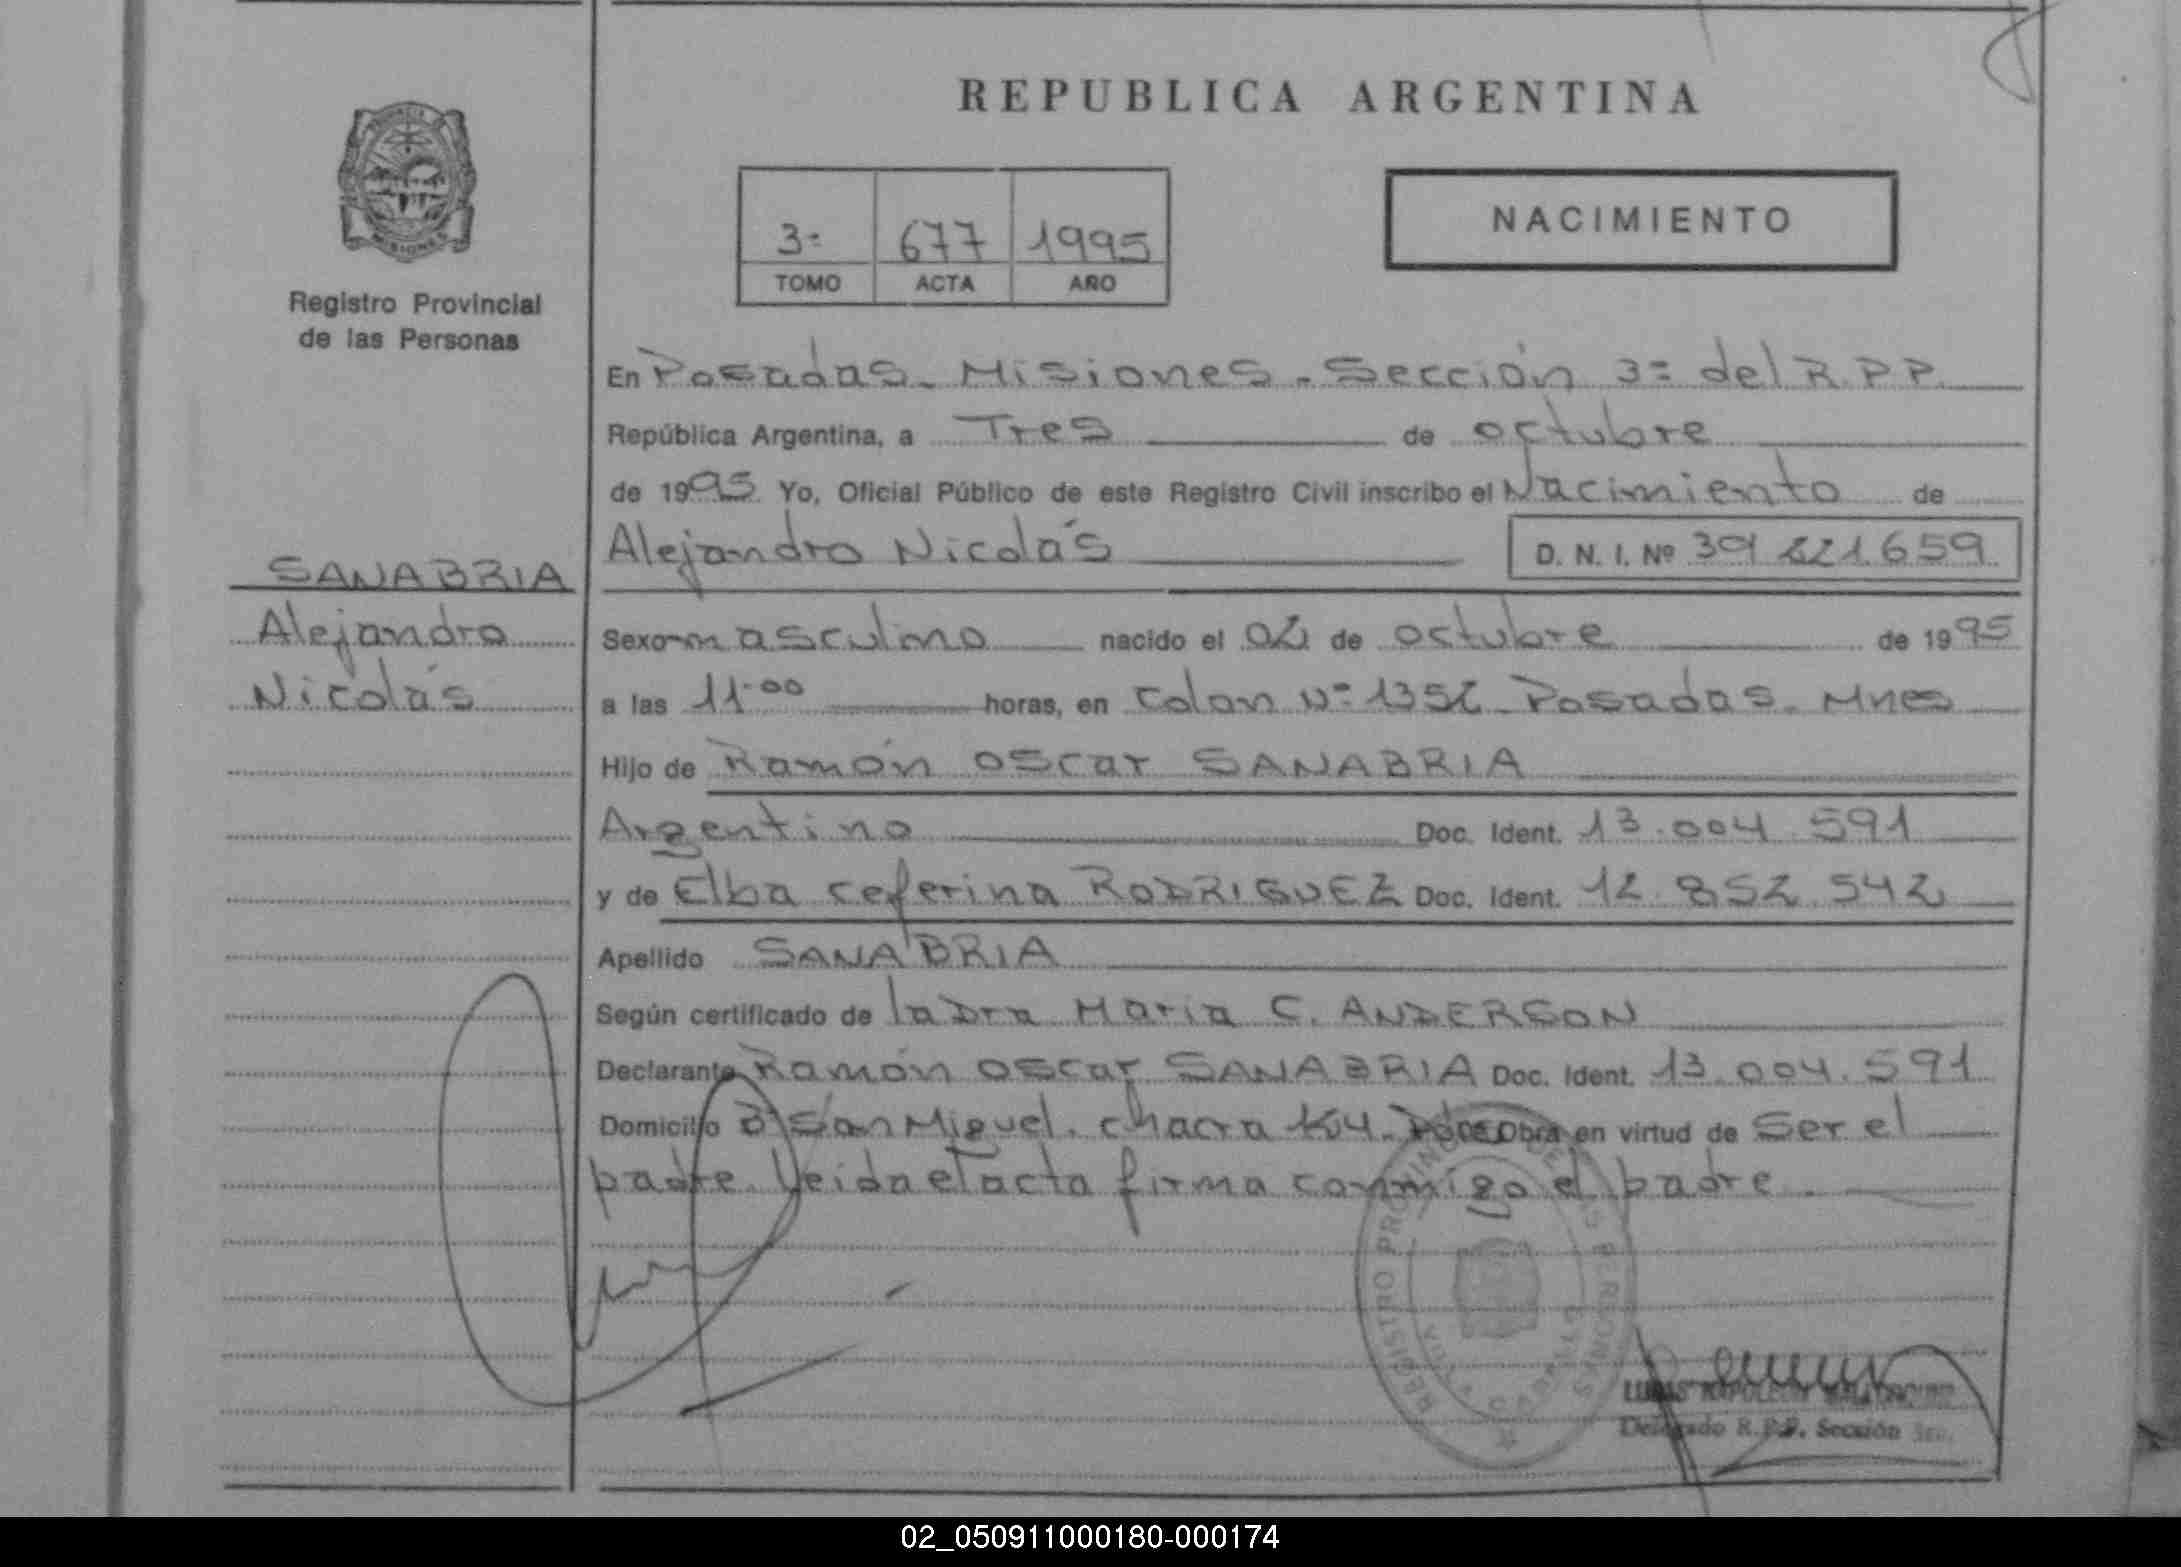 REPUBLICA ARGENTINA
PROVINCIA DE MISIONES
Registro Provincial
de las Personas
3ª 677 1995
TOMO ACTA AÑO
NACIMIENTO
En Posadas - Misiones - Sección 3ª del R.P.P.
República Argentina, a Tres de octubre
de 1995 Yo, Oficial Público de este Registro Civil inscribo el Nacimiento de
Alejandro Nicolás D. N. I. Nº 39.221.659
SANABRIA
Alejandro
Nicolás
Sexo masculino nacido el 02 de octubre de 1995
a las 11:00 horas, en Colon Nº 1352 - Posadas - Mnes
Hijo de Ramón Oscar SANABRIA
Argentino Doc. Ident. 13.004.591
y de Elba Ceferina RODRIGUEZ Doc. Ident. 12.852.542
Apellido SANABRIA
Según certificado de la Dra Maria C. ANDERSON
Declarante Ramón Oscar SANABRIA Doc. Ident. 13.004.591
Domicilio Bº San Miguel. chacra Obra en virtud de Ser el
padre. Leida el acta firma conmigo el padre.
REGISTRO PROVINCIAL DE LAS PERSONAS
NAPOLEON
Delegado R.P.P. Sección 3ra.
02_050911000180-000174